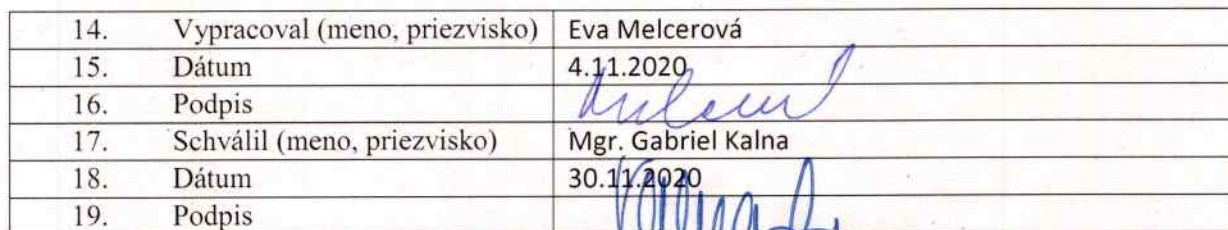 14. Vypracoval (meno, priezvisko) Eva Melcerová
15. Dátum 4.11.2020
16. Podpis
17. Schválil (meno, priezvisko) Mgr. Gabriel Kalna
18. Dátum 30.11.2020
19. Podpis